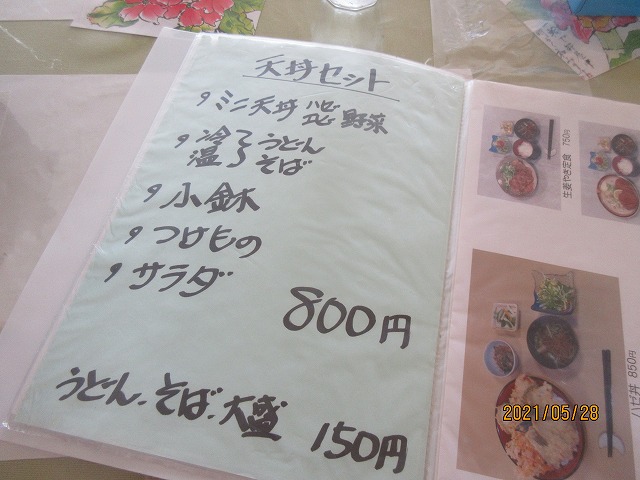 天丼セット
・ミニ天丼 ハゼ エビ 野菜
・冷〜うどん
温〜そば
・小鉢
・つけもの
・サラダ
800円
うどん、そば、大盛 150円
生姜やき定食 750円
ハゼ丼 850円
2021/05/28